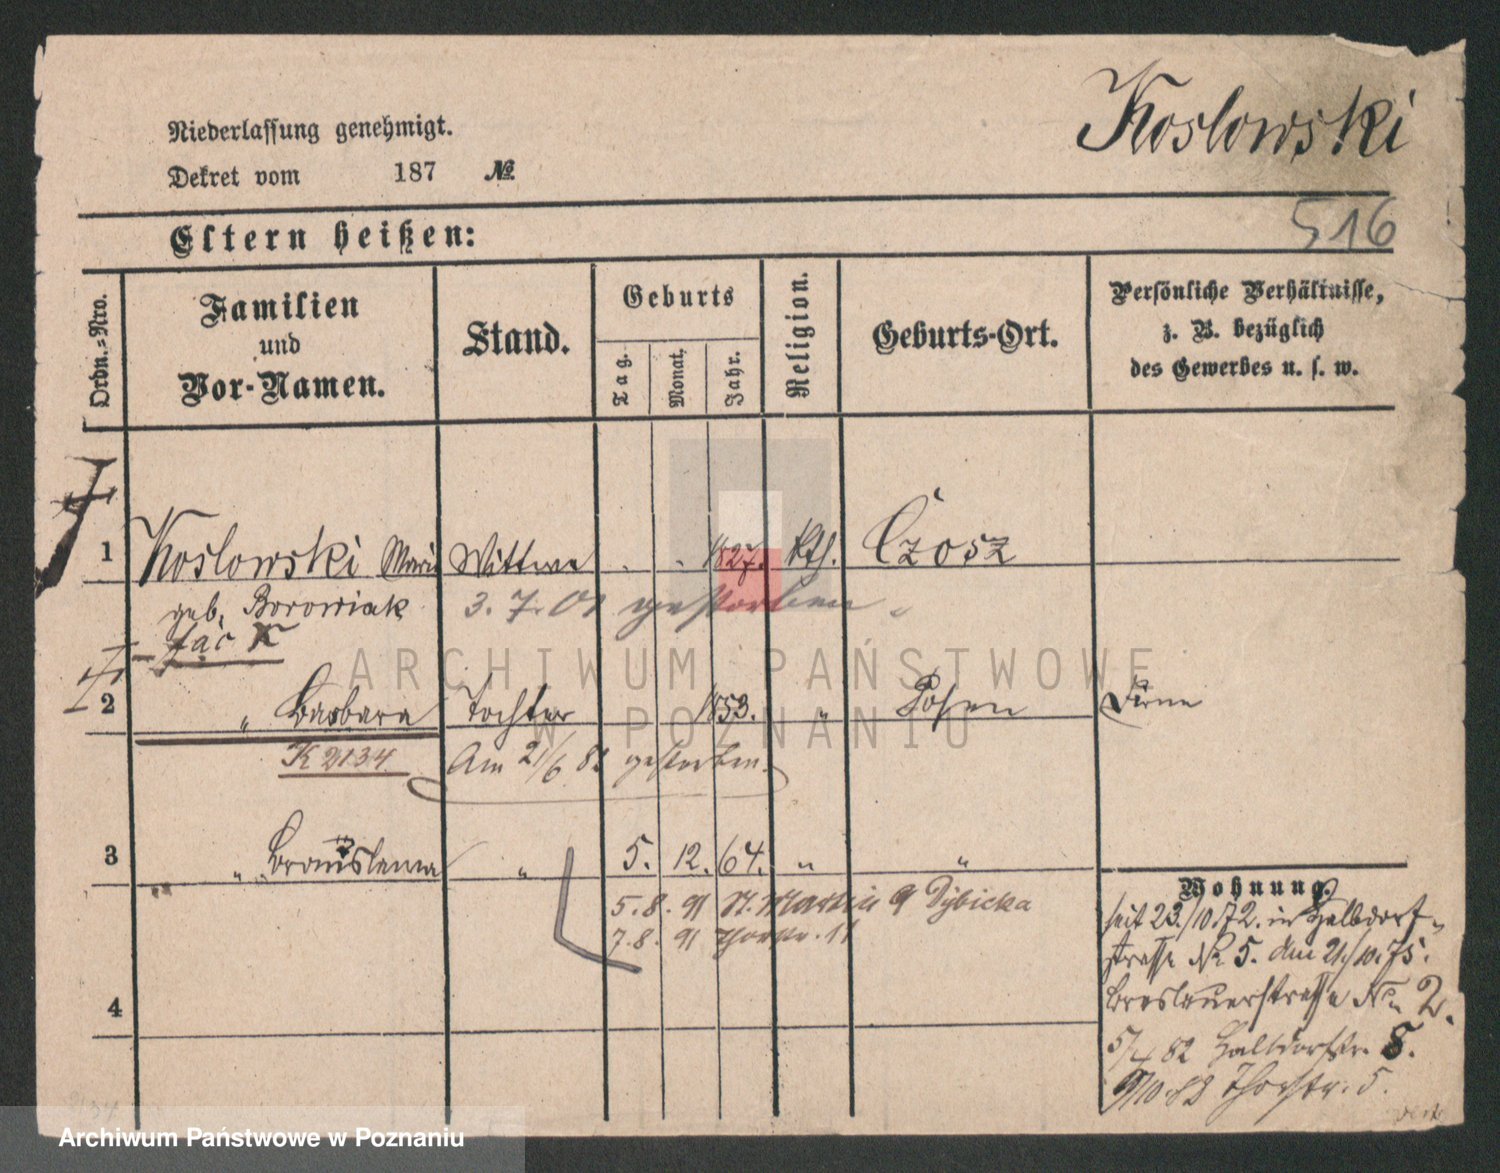 Koslowski
Niederlassung genehmigt.
Dekret vom 187 №
516
Eltern heißen:
Ordn.-Nro.
Familien
und
Vor-Namen.
Stand.
Geburts
Tag.
Monat.
Jahr.
Religion.
Geburts-Ort.
Persönliche Verhältnisse,
z. B. bezüglich
des Gewerbes u. s. w.
1 Koslowski Marie Wittwe 1827. kth. Czosz
geb. Borowiak 3. 7. 01 gestorben
2 " Barbara Tochter 1853. " Posen
K 2134 Am 21/6 gestorben.
3 " " 5. 12. 64. " "
5. 8. 91 St. Martin 9 Dybicka
7. 8. 91 11
4
Wohnung.
seit 23./10.72. in Halbdorf-
strasse No 5. Am 21/10.75.
Breslauerstrasse No 2.
5/4 82 Halbdorfstr. 8.
9/10.82 Thorstr. 5.
ARCHIWUM PAŃSTWOWE
W POZNANIU
Archiwum Państwowe w Poznaniu